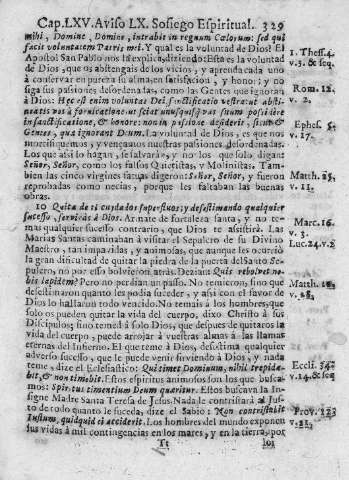 Cap.LXV. Aviso LX. Sosiego Espiritual. 329
mihi, Domine, Domine, intrabit in regnum Cælorum: sed qui
facit voluntatem Patris mei. Y qual es la voluntad de Dios? El
Apostol San Pablo nos la explica, diziendo: Esta es la voluntad
de Dios, que os abstengais de los vicios, y aprenda cada uno
à conservar en pureza su alma, en santificacion, y honor: y no
siga sus pasiones desordenadas, como las Gentes que ignoran
à Dios: Hæc est enim voluntas Dei sanctificatio vestra: ut absti-
neatis vos à fornicatione: ut sciat unusquisque vas suum possidere
in sanctificatione, & honore: non in passione desiderii, sicut &
Gentes, quæ ignorant Deum. La voluntad de Dios, es que nos
mortifiquemos, y vençamos nuestras pasiones desordenadas.
Los que asi lo hagan, se salvaràn; y no los que solo digan
Señor, Señor, como los falsos Quietistas, y Molinistas. Tam-
bien las cinco virgines fatuas digeron: Señor, Señor, y fueron
reprobadas como necias, porque les faltaban las buenas
obras.
10 Quita de ti cuydados superfluos; y desestimando qualquier
sucesso, servirás à Dios. Armate de fortaleza santa, y no te-
mas qualquier sucesso contrario, que Dios te assistirà. Las
Marias Santas caminaban à visitar el Sepulcro de su Divino
Maestro, tan impavidas, y animosas, que aunque les ocurriò
la gran dificultad de quitar la piedra de la puerta del Santo Se-
pulcro, no por esso bolvieron atràs. Dezian: Quis revolvet no-
bis lapidem? Pero no perdian un passo. No temieron, sino que
desestimaron quanto les podia suceder, y assi con el favor de
Dios lo hallaron todo vencido. No temais à los hombres, que
solo os pueden quitar la vida del cuerpo, dixo Christo à sus
Discipulos; sino temed à solo Dios, que despues de quitaros la
vida del cuerpo, puede arrojar à vuestras almas à las llamas
eternas del Infierno. El que teme à Dios, desestima qualquier
adverso sucesso, que le puede venir sirviendo à Dios, y nada
teme, dize el Eclesiastico: Qui timet Dominum, nihil trepida-
bit, & non timebit. Estos espiritus animosos son los que busca-
mos: Spiritus timentium Deum quæritur. Ellos buscava la In-
signe Madre Santa Teresa de Jesus. Nada le contristarà al Jus-
to de todo quanto le suceda, dize el Sabio: Non contristabit
Iustum, quidquid ei acciderit. Los hombres del mundo exponen
sus vidas à mil contingencias en los mares, y en la tierra, por
Tt
los
1. Thess. 4.
v. 3. & seq.
Rom. 12.
v. 2.
Ephes. 5.
v. 17.
Matth. 25.
v. 11.
Marc. 16.
v. 3.
Luc. 24. v. 2
Matth. 10.
v. 28.
Eccli. 34.
v. 14. & seq
Prov. 12.
v. 21.